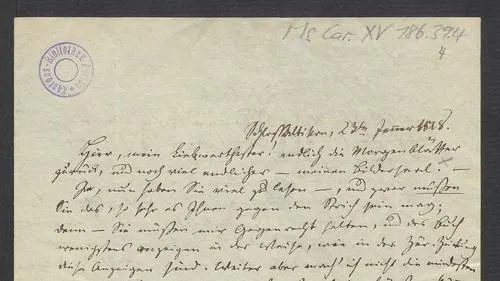 Ms Car. XV 186.39.4
4
Kantons-Bibliothek Zürich
Schloß Altikon, 23ten Jenner 1828.
Hier, mein Liebwerthester! endlich die Morgenblätter
zurück, und noch viel endlicher — meinen Bildersaal. —
Ja, nun haben Sie viel zu lesen —, und zwar müssen
Sie das, so sehr es Ihnen gegen den Strich sein mag;
denn — Sie müssen mir Gegenrecht halten, und das Buch
wenigstens anzeigen in der Weise, wie in der Zür. Zeitung
diese Anzeigen sind. Weiter aber mach' ich nicht die mindesten